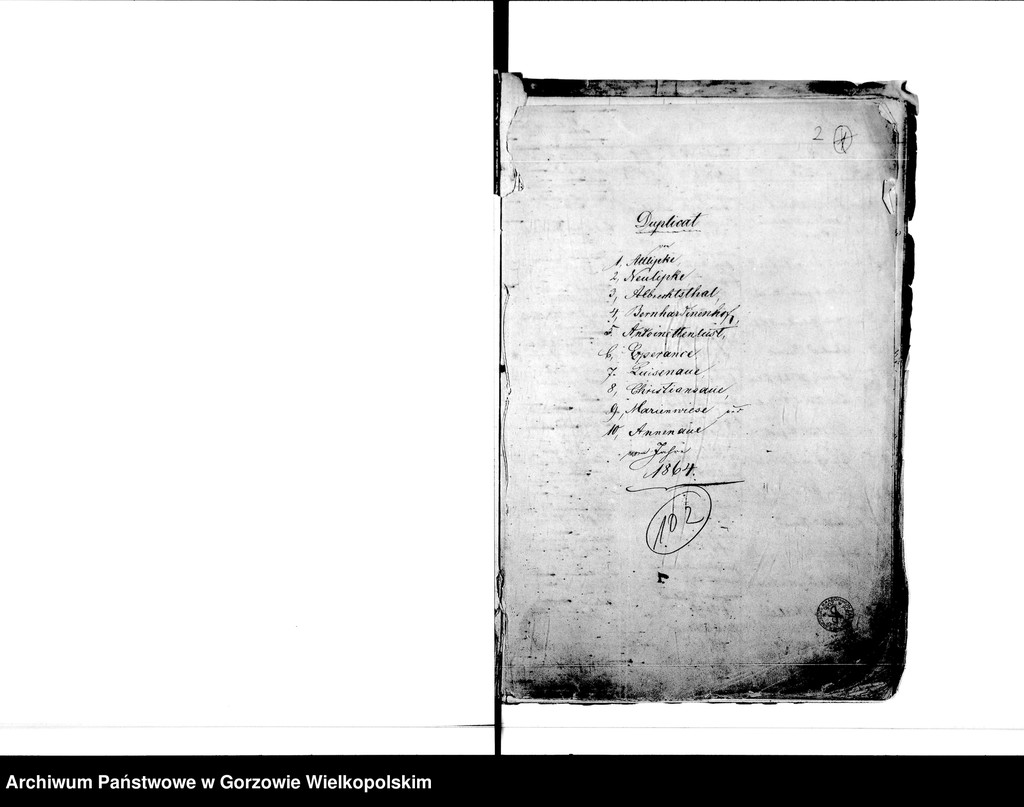 2
Duplicat
von
1, Altlipke
2, Neulipke
3, Albrechtsthal,
4, Bernhardinenhof,
5. Antoinettenlust,
6, Esperance
7. Luisenaue
8, Christiansaue,
9, Marienwiese und
10, Annenaue
vom Jahre
1864.
102
Archiwum Państwowe w Gorzowie Wielkopolskim